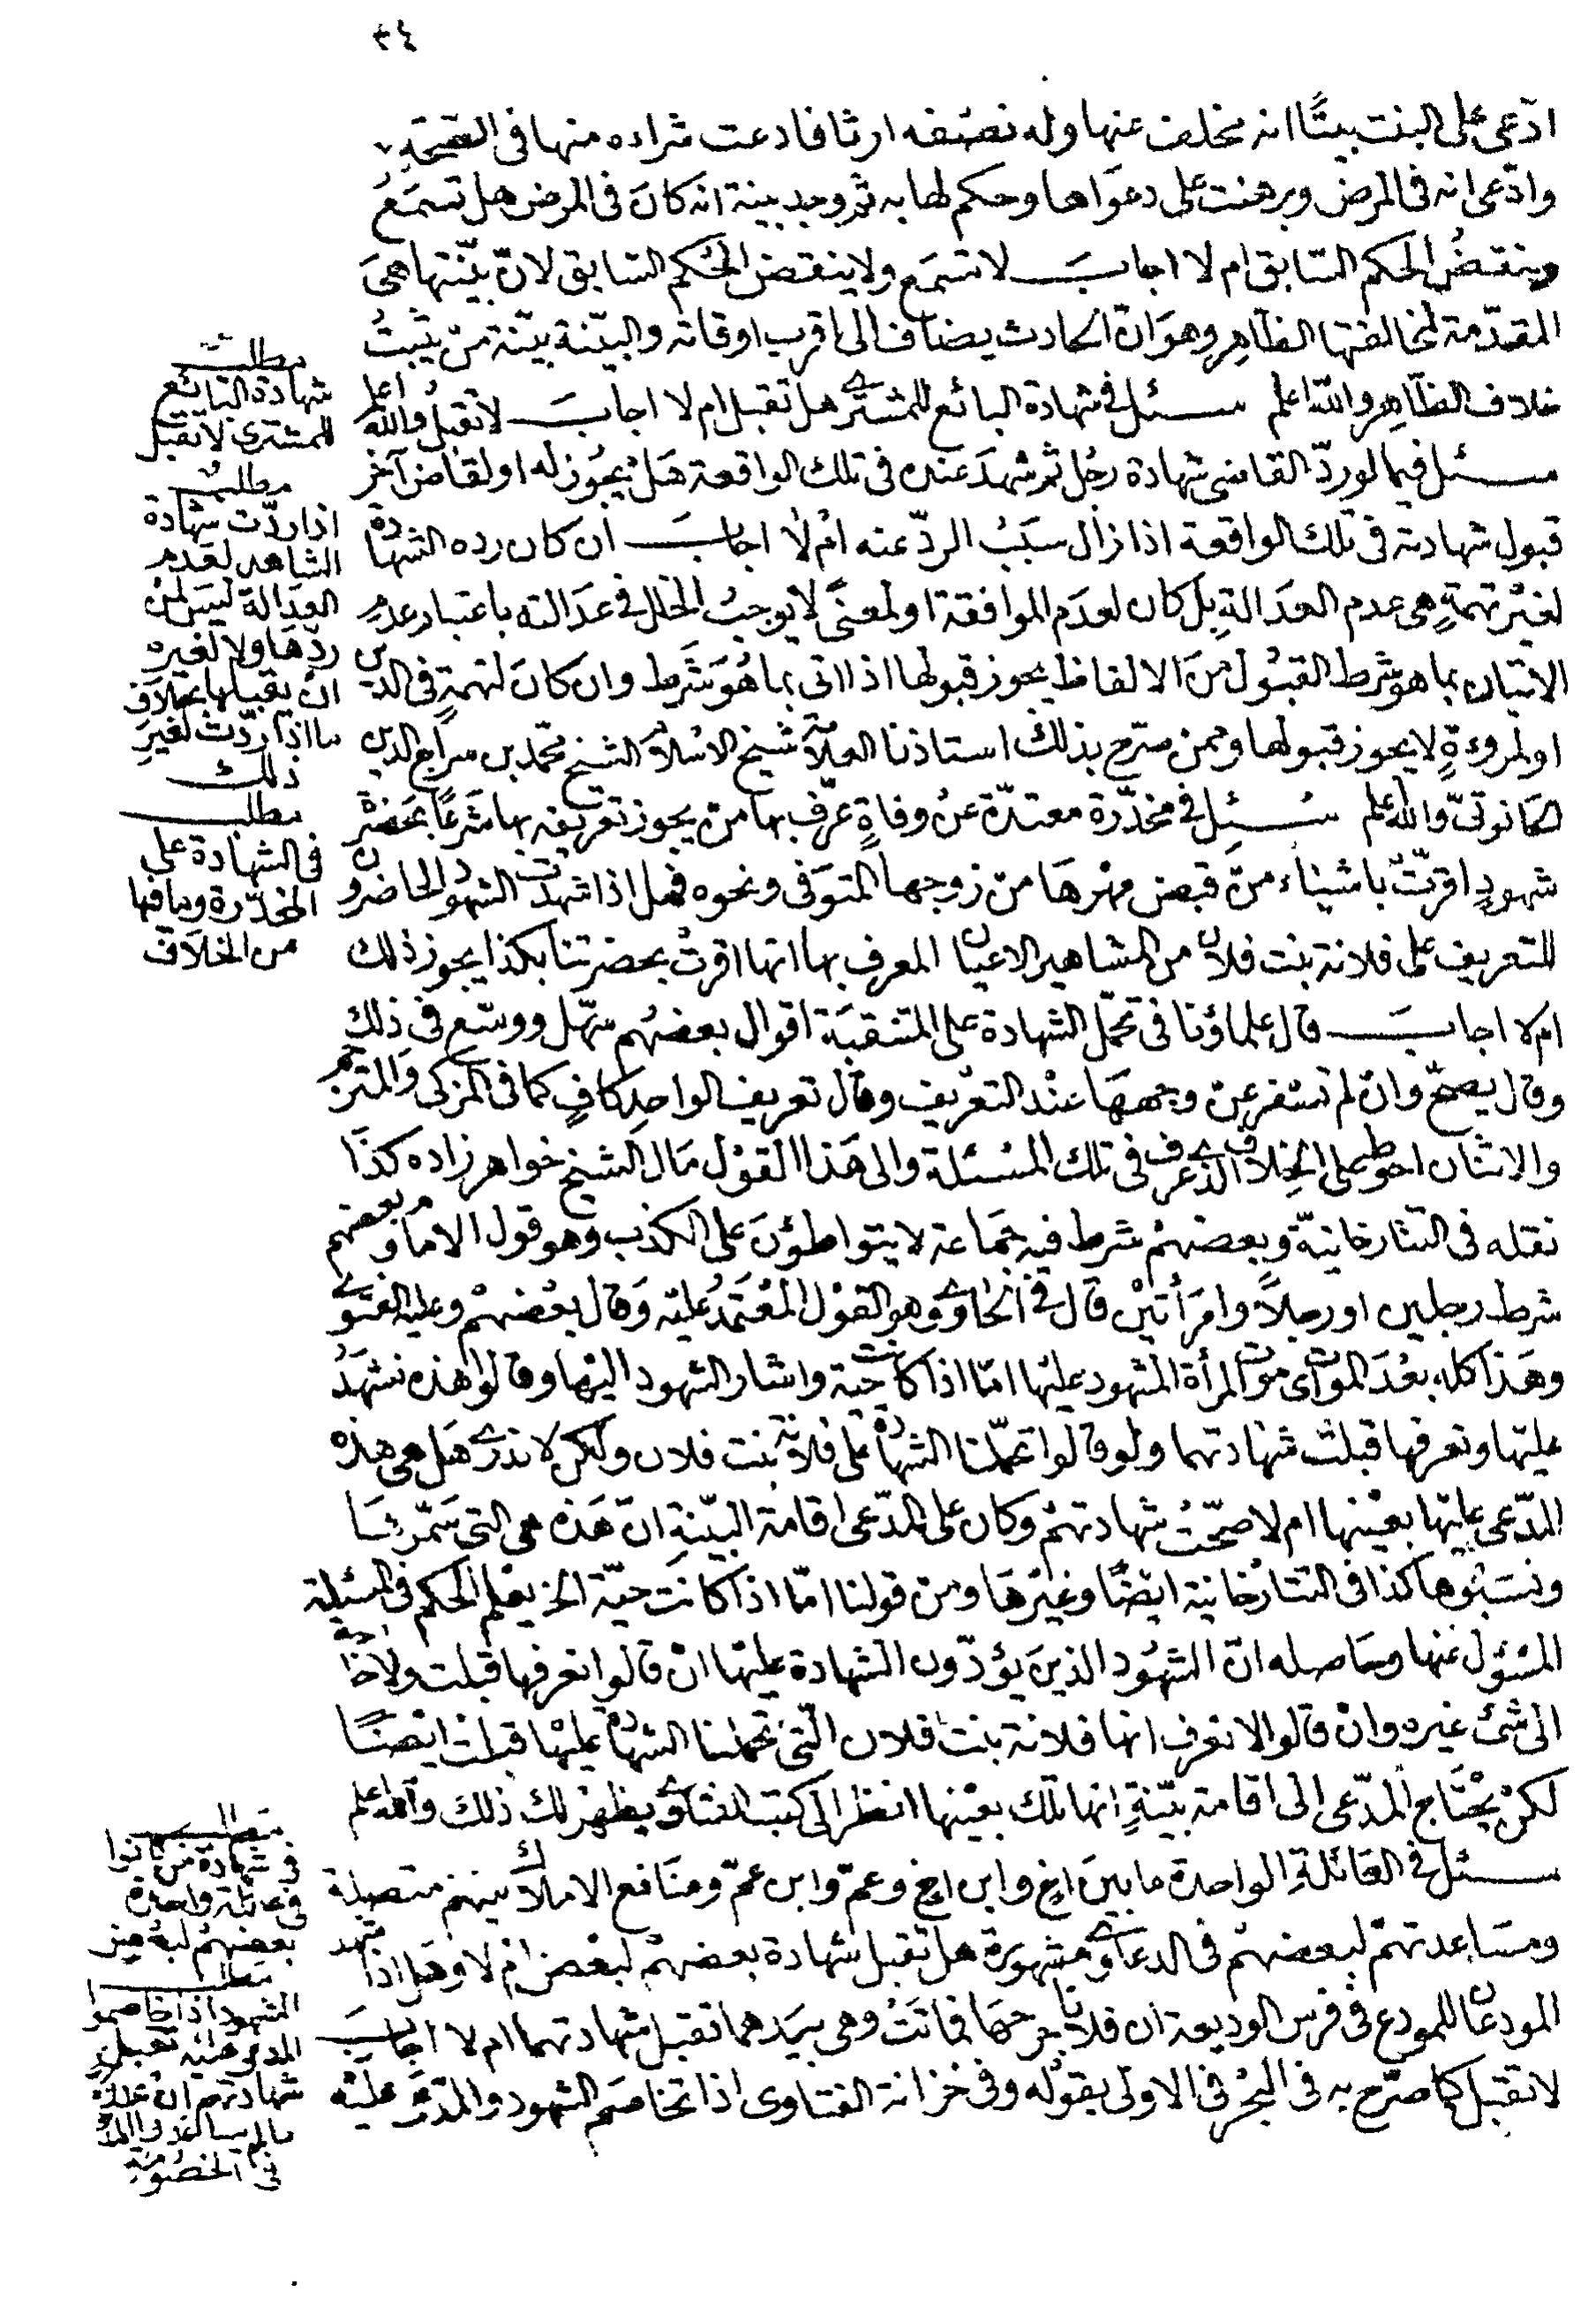 ٣٤
ادّعى على البنت بيتًا انه مخلف عنها وله نصفه ارثا فادعت شراءه منها فى الصحة
وادّعى انه فى المرض وبرهنت على دعواها وحكم لها به ثم وجد بينة انه كان فى المرض هل تسمع
وينقض الحكم السّابق ام لا اجاب لا تسمع ولا ينقض الحكم السابق لانّ بيّنتها هى
المقدّمة لمخالفتها الظاهر وهو انّ الحادث يضاف الى اقرب اوقاته والبيّنة بيّنة من يثبت
خلاف الظاهر والله اعلم سئل فى شهادة البائع للمشترى هل تقبل ام لا اجاب لا تقبل والله اعلم
سئل فيما لو ردّ القاضى شهادة رجل ثم شهد عنده فى تلك الواقعة هل يجوز له او لقاض آخر
قبول شهادته فى تلك الواقعة اذا زال سبب الردّ عنه ام لا اجاب ان كان رده الشهادة
لغير تهمة هى عدم العدالة بل كان لعدم الموافقة او لمعنى لا يوجب الخلل فى عدالته باعتبار عدم
الاتيان بما هو شرط القبول من الالفاظ يجوز قبولها اذا اتى بما هو شرط وان كان لتهمة فى الدين
او لمروءة لا يجوز قبولها وممن صرّح بذلك استاذنا العلّامة شيخ الاسلام الشيخ محمّد بن سراج الدين
الحانوتىّ والله اعلم سئل فى مخدّرة معتدّة عن وفاة عرّف بها من يجوز تعريفه بها شرعًا بحضرة
شهود اقرّت باشياء من قبض مهرها من زوجها المتوفى ونحوه فهل اذا شهدت الشهود الحاضرون
للتعريف على فلانة بنت فلان من المشاهير الاعيان المعرف بها انها اقرت بحضرتنا بكذا يجوز ذلك
ام لا اجاب قال علماؤنا فى تحمّل الشهادة على المتنقبة اقوال بعضهم سهّل ووسّع فى ذلك
وقال يصحّ وان لم تسفر عن وجهها عند التعريف وقال تعريف الواحد كاف كما فى المزكى والمترجم
والاثنان احوط على الخلاف الذى عرف فى تلك المسئلة والى هذا القول مال الشيخ خواهر زاده كذا
نقله فى التتارخانيّة وبعضهم شرط فيه جماعة لا يتواطؤن على الكذب وهو قول الامام وبعضهم
شرط رجلين او رجلاً وامرأتين قال فى الحاوى وهو القول المعتمد عليه وقال بعضهم وعليه الفتوى
وهذا كله بعد الموت اى موت المرأة المشهود عليها امّا اذا كانت حية واشار الشهود اليها وقالوا هذه نشهد
عليها ونعرفها قبلت شهادتهما ولو قالوا تحمّلنا الشهادة على فلانة بنت فلان ولكن لا ندرى هل هى هذه
المدّعى عليها بعينها ام لا صحّت شهادتهم وكان على المدّعى اقامة البيّنة انّ هذه هى التى سمّوها
ونسبوها كذا فى التتارخانية ايضًا وغيرها ومن قولنا امّا اذا كانت حيّة الخ يعلم الحكم فى المسئلة
المسئول عنها وحاصله انّ الشهود الذين يؤدّون الشهادة عليها ان قالوا نعرفها قبلت ولا حاجة
الى شئ غيره وان قالوا لا نعرف انها فلانة بنت فلان الّتى تحملنا الشهادة عليها قبلت ايضًا
لكن يحتاج المدّعى الى اقامة بيّنة انها تلك بعينها انظر الى كتب الفتاوى يظهر لك ذلك والله اعلم
سئل فى العائلة الواحدة ما بين اخ وابن اخ وعمّ وابن عمّ ومنافع الاملاك بينهم متصلة
ومساعدتهم لبعضهم فى الدعاوى مشهورة هل تقبل شهادة بعضهم لبعض ام لا وهل اذا شهد
المودعان للمودع فى فرس الوديعة ان فلانا جرحها فماتت وهى بيدهما تقبل شهادتهما ام لا اجاب
لا تقبل كما صرّح به فى البحر فى الاولى بقوله وفى خزانة الفتاوى اذا تخاصم الشهود والمدّعى عليه
مطلب
شهادة البائع
للمشترى لا تقبل
مطلب
اذا ردّت شهادة
الشاهد لعدم
العدالة ليس لمن
ردّها ولا لغيره
ان يقبلها بخلاف
ما اذا ردّت لغير
ذلك
مطلب
فى الشهادة على
المخدّرة وما فيها
من الخلاف
مطلب
فى شهادة من كانوا
فى عائلة واحدة
بعضهم لبعض
مطلب
الشهود اذا خاصموا
المدعى عليه تقبل
شهادتهم ان عدلوا
ما لم يساعدوا المدّعى
فى الخصومة